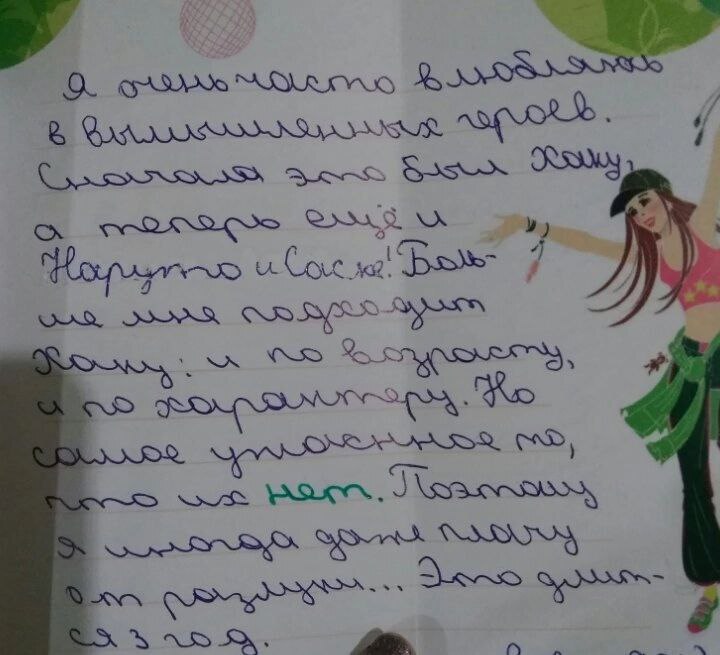 Я очень часто влюбляюсь
в вымышленных героев.
Сначала это был Хаку,
а теперь ещё и
Наруто и Саске! Боль-
ше мне подходит
Хаку: и по возрасту,
и по характеру. Но
самое ужаснное то,
что их нет. Поэтому
я иногда даже плачу
от разлуки... Это длит-
ся 3 год.